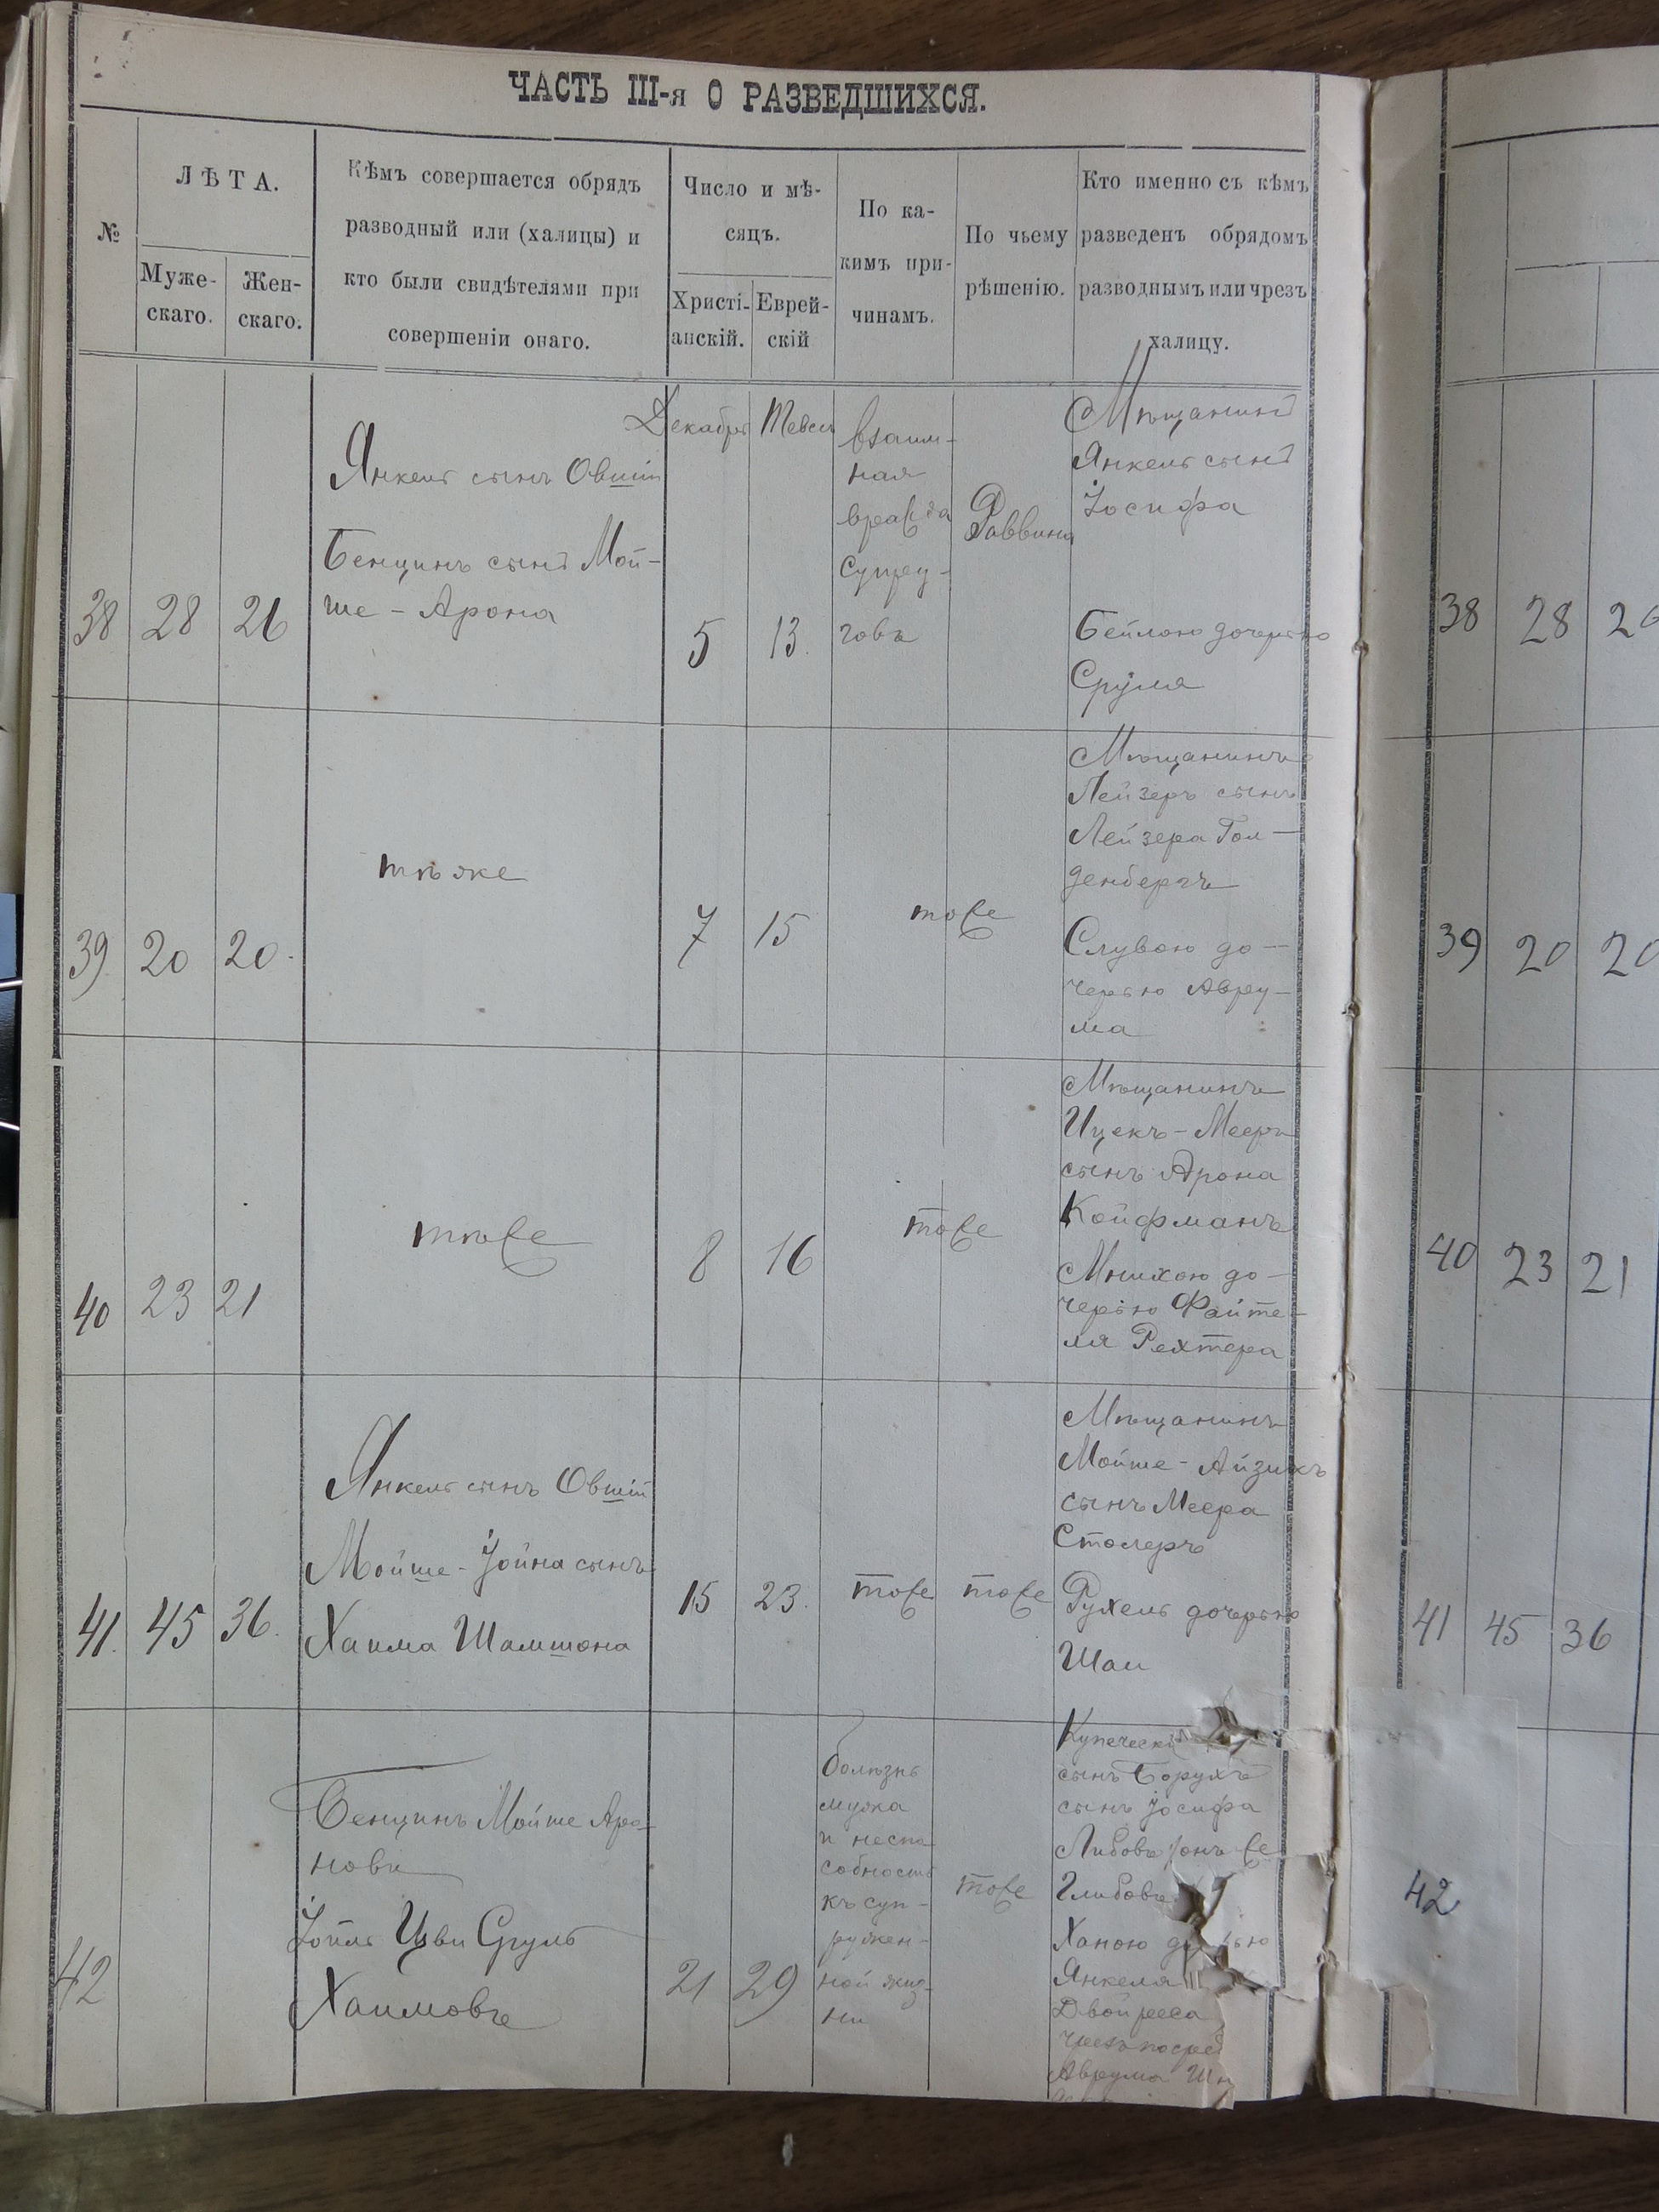 ЧАСТЬ III-я О РАЗВЕДШИХСЯ.
№
ЛѢТА.
Муже-
скаго.
Жен-
скаго.
Кѣмъ совершается обрядъ
разводный или (халицы) и
кто были свидѣтелями при
совершеніи онаго.
Число и мѣ-
сяцъ.
Христі-
анскій.
Еврей-
скій
По ка-
кимъ при-
чинамъ.
По чьему
рѣшенію.
Кто именно съ кѣмъ
разведенъ обрядомъ
разводнымъ или чрезъ
халицу.
38
28
26
Янкель сынъ Овшіи
Бенцинъ сынъ Мой-
ше-Арона
Декабрь
5
13.
взаим-
ная
вражда
супру-
говъ
Раввина
Мѣщанинъ
Янкель сынъ
Іосифа
Бейлою дочерью
Сруля
38 28
39
20
20
тѣже
7
15
тоже
Мѣщанинъ
Лейзеръ сынъ
Лейзера Гол-
денбергъ
Слувою до-
черью Авру-
ма
39 20 20
40
23
21
тѣже
8
16
тоже
Мѣщанинъ
Ицекъ-Мееръ
сынъ Арона
Койфманъ
до-
черью Файте-
ля Рехтера
40 23 21
41.
45
36.
Янкель сынъ Овшіи
Мойше-Іойна сынъ
Хаима Шамшона
15
23.
тоже
тоже
Мѣщанинъ
Мойше-Айзикъ
сынъ Меера
Столеръ
Рухель дочерью
Шаи
41 45 36
42
Бенцинъ Мойше Аро-
новъ
Іойль Цви Сруль
Хаимовъ
21
29
болѣзнь
мужа
и неспо
собность
къ суп-
ружен-
ной жиз-
ни
тоже
сынъ Борухъ
сынъ Іосифа
Ханою
Янкеля
Аврума
42